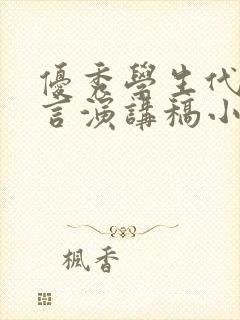 優秀學生代
言演講稿小
楓香